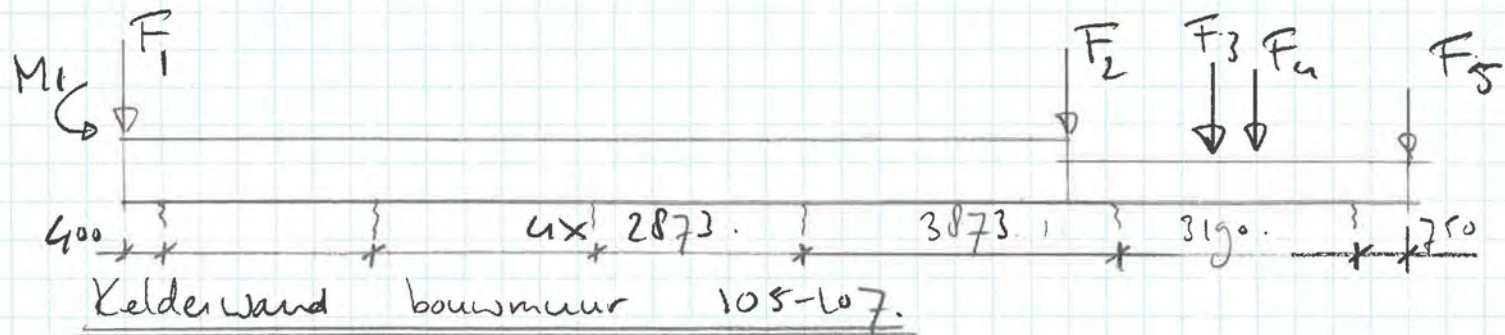 M1 F1 F2 F3 F4 F5
400 4x 2873. 3873 3190. 750
Kelderwand bouwmuur 105-107.